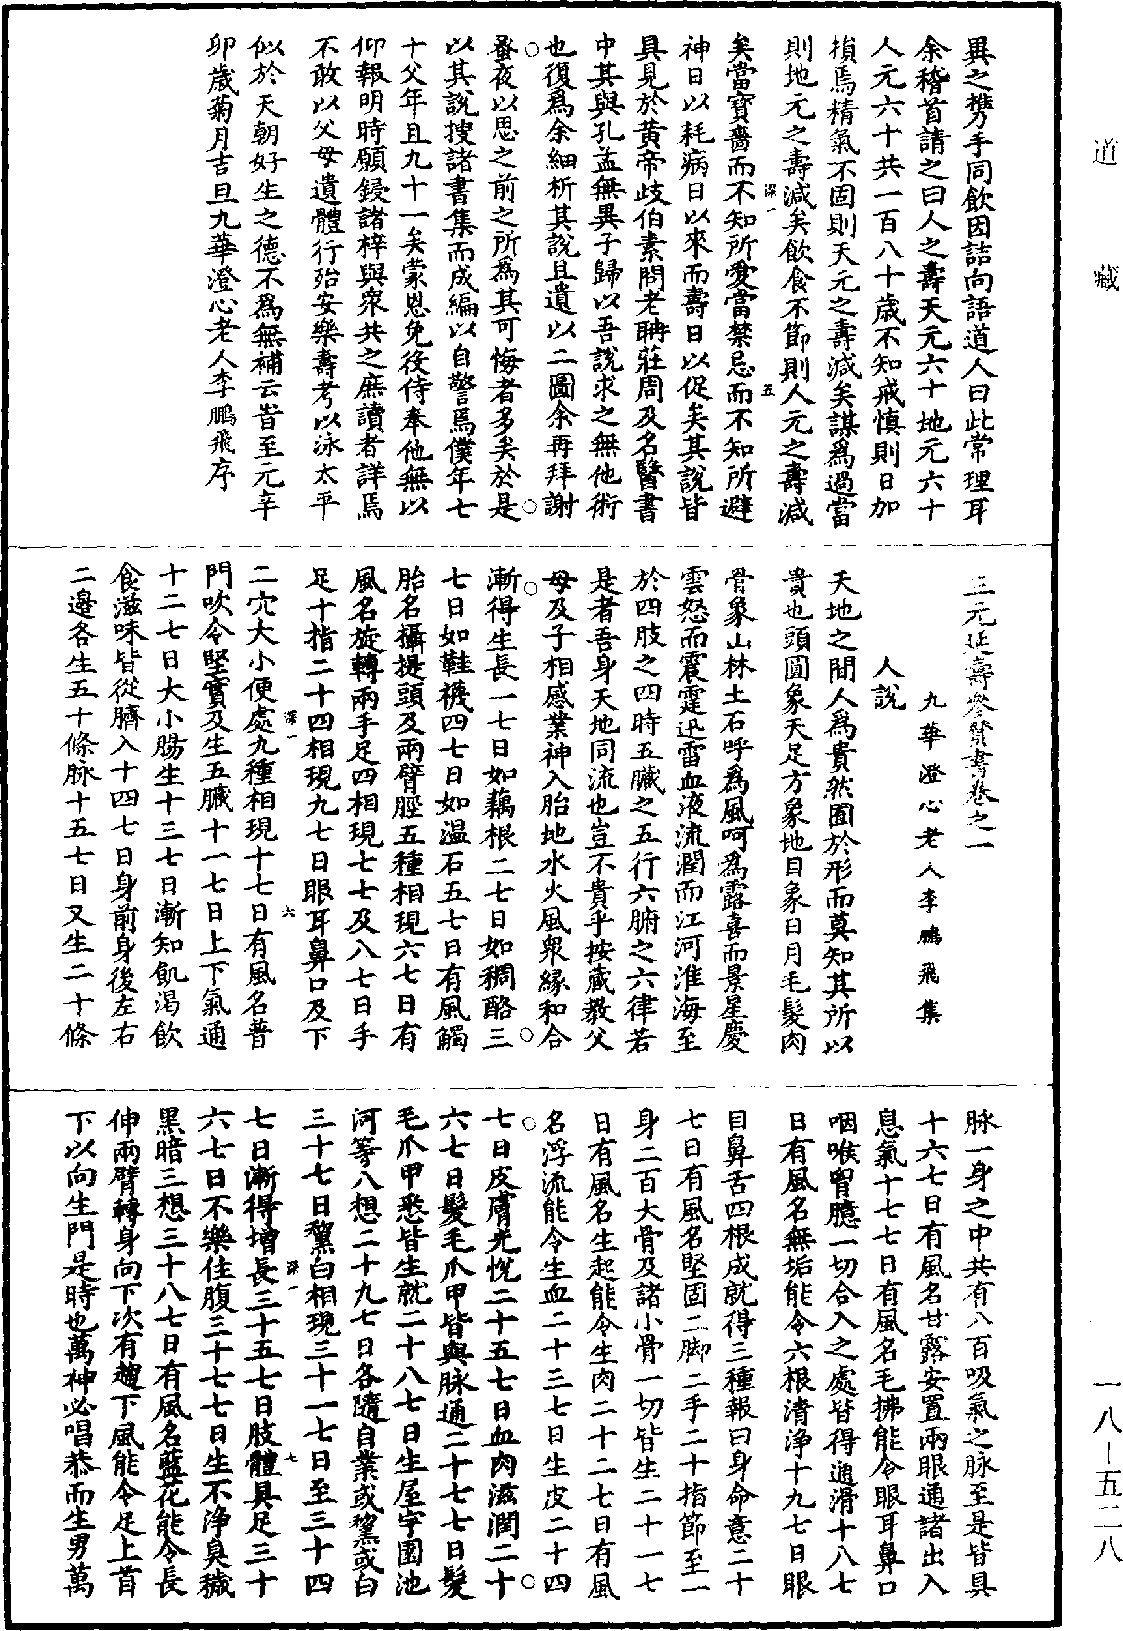 異之携手同飲因詰向語道人曰此常理耳
余稽首請之曰人之壽天元六十地元六十
人元六十共一百八十歲不知戒慎則日加
損焉精氣不固則天元之壽減矣謀為過當
則地元之壽減矣飲食不節則人元之壽減
矣當寶嗇而不知所愛當禁忌而不知所避
神日以耗病日以來而壽日以促矣其說皆
具見於黄帝歧伯素問老聃莊周及名醫書
中其與孔孟無異子歸以吾說求之無他術
也復為余細析其說且遺以二圖余再拜謝
蚤夜以思之前之所為其可悔者多矣於是
以其說搜諸書集而成編以自警焉僕年七
十父年且九十一矣蒙恩免役侍奉他無以
仰報明時願鋟諸梓與眾共之庶讀者詳焉
不敢以父母遺體行殆安樂壽考以泳太平
似於天朝好生之德不為無補云旹至元辛
卯歲菊月吉旦九華澄心老人李鵬飛序
深一
五
三元延壽參贊書卷之一
九華澄心老人李鵬飛集
人說
天地之間人為貴然囿於形而莫知其所以
貴也頭圓象天足方象地目象日月毛髮肉
骨象山林土石呼為風呵為露喜而景星慶
雲怒而震霆迅雷血液流潤而江河淮海至
於四肢之四時五臟之五行六腑之六律若
是者吾身天地同流也豈不貴乎按藏教父
母及子相感業神入胎地水火風眾緣和合
漸得生長一七日如藕根二七日如稠酪三
七日如鞋襪四七日如温石五七日有風觸
胎名攝提頭及兩臂脛五種相現六七日有
風名旋轉兩手足四相現七七及八七日手
足十指二十四相現九七日眼耳鼻口及下
二穴大小便處九種相現十七日有風名普
門吹令堅實及生五臟十一七日上下氣通
十二七日大小腸生十三七日漸知飢渴飲
食滋味皆從臍入十四七日身前身後左右
二邊各生五十條脉十五七日又生二十條
深一
六
脉一身之中共有八百吸氣之脉至是皆具
十六七日有風名甘露安置兩眼通諸出入
息氣十七七日有風名毛拂能令眼耳鼻口
咽喉胷臆一切合入之處皆得通滑十八七
日有風名無垢能令六根清浄十九七日眼
目鼻舌四根成就得三種報曰身命意二十
七日有風名堅固二脚二手二十指節至一
身二百大骨及諸小骨一切皆生二十一七
日有風名生起能令生肉二十二七日有風
名浮流能令生血二十三七日生皮二十四
七日皮膚光悦二十五七日血肉滋潤二十
六七日髮毛爪甲皆與脉通二十七七日髮
毛爪甲悉皆生就二十八七日生屋宇園池
河等八想二十九七日各隨自業或黧或白
三十七日黧白相現三十一七日至三十四
七日漸得增長三十五七日肢體具足三十
六七日不樂住腹三十七七日生不浄臭穢
黑暗三想三十八七日有風名藍花能令長
伸兩臂轉身向下次有趣下風能令足上首
下以向生門是時也萬神必唱恭而生男萬
深一
七
道藏
一八—五二八